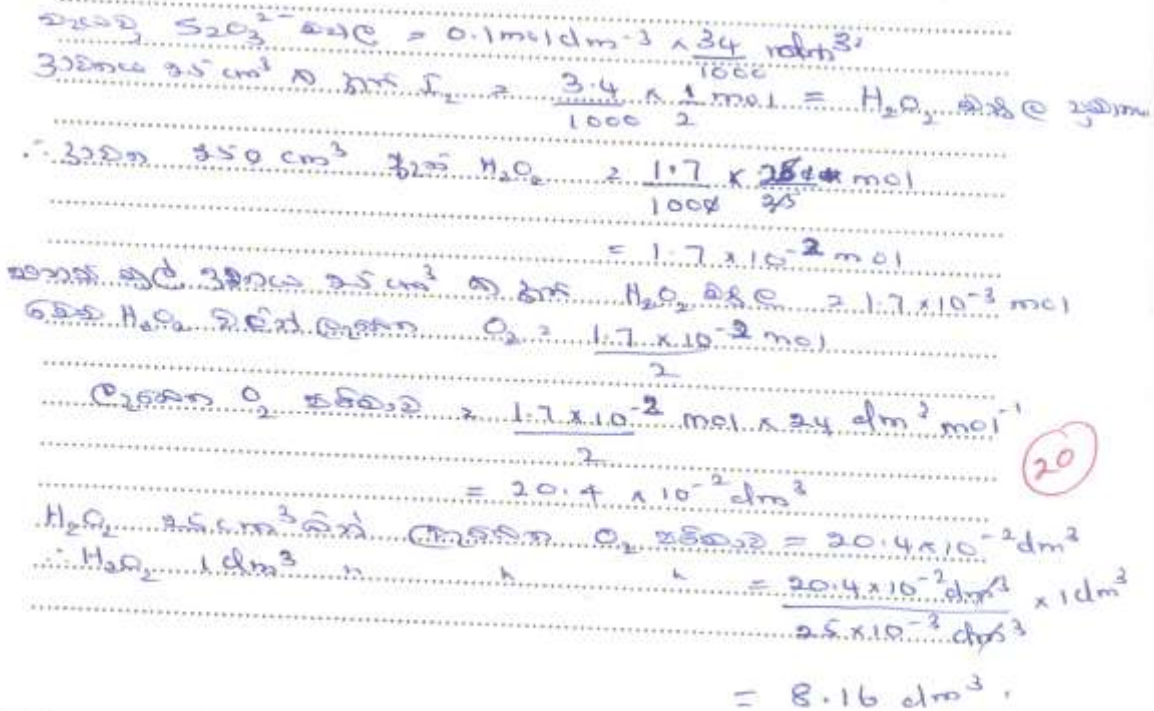 වැයවූ S₂O₃²⁻ මවුල = 0.1 mol dm⁻³ × 34/1000 dm³
ද්‍රාවණය 25 cm³ ක ඇති I₂ = 3.4/1000 × 1/2 mol = H₂O₂ මවුල
∴ ද්‍රාවණ 250 cm³ ඇති H₂O₂ = 1.7/1000 × 250/25 mol
= 1.7 × 10⁻² mol
මුල් ද්‍රාවණය 25 cm³ ක ඇති H₂O₂ මවුල = 1.7 × 10⁻³ mol
H₂O₂ වලින් ලැබෙන O₂ = 1.7 × 10⁻² mol / 2
ලැබෙන O₂ පරිමාව = 1.7 × 10⁻² mol / 2 × 24 dm³ mol⁻¹
20
= 20.4 × 10⁻² dm³
H₂O₂ 25 cm³ කින් ලැබෙන O₂ පරිමාව = 20.4 × 10⁻² dm³
∴ H₂O₂ 1 dm³ " " " = 20.4 × 10⁻² dm³ / 25 × 10⁻³ dm³ × 1 dm³
= 8.16 dm³.